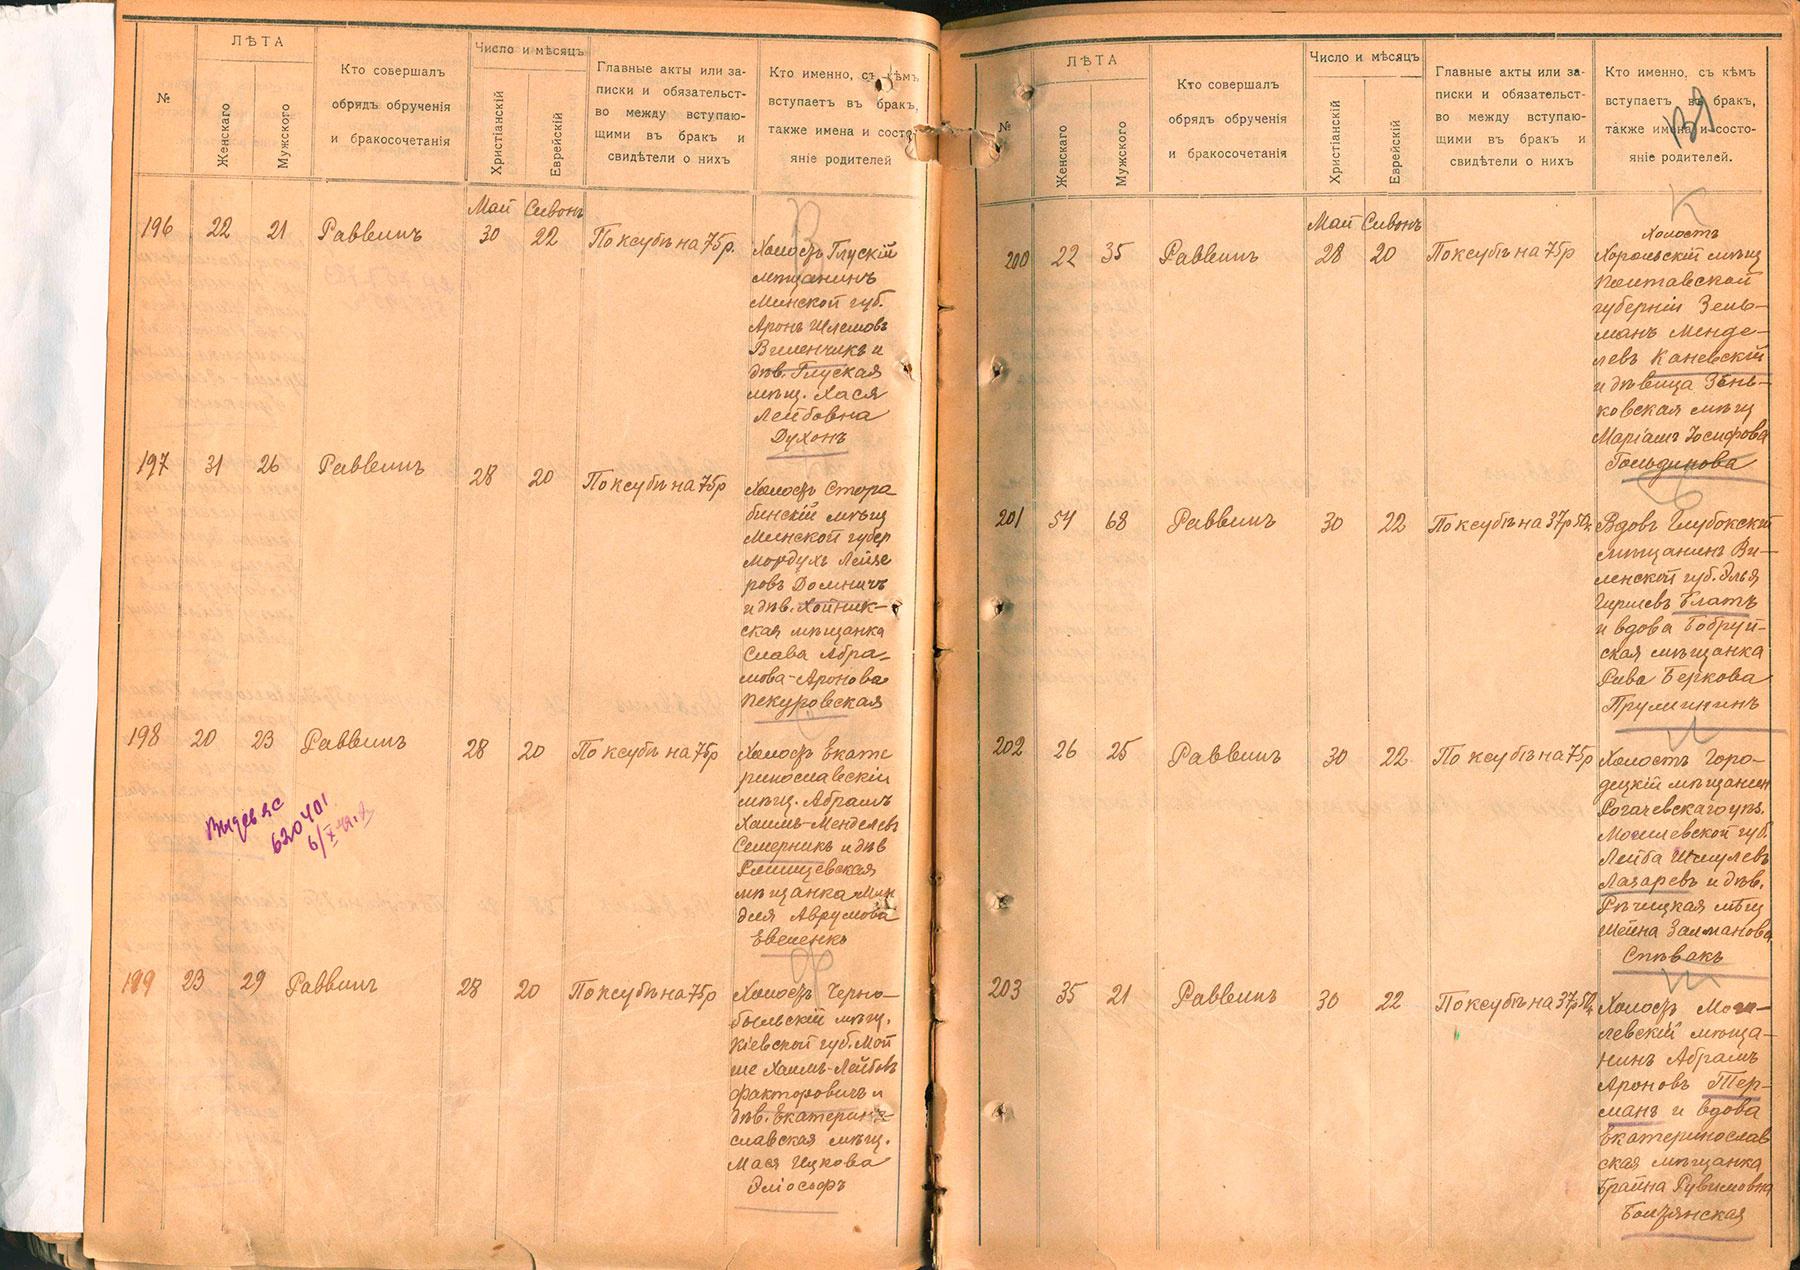 №
ЛѢТА
Женскаго
Мужского
Кто совершалъ
обрядъ обрученія
и бракосочетанія
Число и мѣсяцъ
Христіанскій
Еврейскій
Главные акты или за-
писки и обязательст-
во между вступаю-
щими въ бракъ и
свидѣтели о нихъ
Кто именно, съ кѣмъ
вступаетъ въ бракъ,
также имена и состо-
яніе родителей
Май Сивонъ
196 22 21 Раввинъ 30 22 По ксубѣ на 75р.
В
Холостъ Глускій
мѣщанинъ
Минской губ.
Аронъ Шлемовъ
Виленчикъ и
дѣв. Глуская
мѣщ. Хася
Лейбовна
Духонъ
197 31 26 Раввинъ 28 20 По ксубѣ на 75р
Холостъ Стора
бинскій мѣщ
Минской губер
Мордухъ Лейзе
ровъ Домничъ
и дѣв. Хойник-
ская мѣщанка
Слава Абра-
мова-Аронова
Пекуровская
198 20 23 Раввинъ 28 20 По ксубѣ на 75р
С
Холостъ Екате
ринославскій
мѣщ. Абрамъ
Хаимъ-Менделевъ
Семерникъ и дѣв
мѣщанка Мин
для Аврумова
Евеленко
620401
199 23 29 Раввинъ 28 20 По ксубѣ на 75р
Ф
Холостъ Черно-
быльскій мѣщ.
Кіевской губ. Мой
ше Хаимъ-Лейбовъ
Факторовичъ и
дѣв. Екатерино-
славская мѣщ.
Мася Ицкова
Эліософъ
№
ЛѢТА
Женскаго
Мужского
Кто совершалъ
обрядъ обрученія
и бракосочетанія
Число и мѣсяцъ
Христіанскій
Еврейскій
Главные акты или за-
писки и обязательст-
во между вступаю-
щими въ бракъ и
свидѣтели о нихъ
Кто именно, съ кѣмъ
вступаетъ въ бракъ,
также имена и состо-
яніе родителей.
Май Сивонъ
200 22 35 Раввинъ 28 20 По ксубѣ на 75р
К
Холостъ
Хорольскій мѣщ
Полтавской
губерніи Зель-
манъ Менде-
левъ Каневскій
и дѣвица Зѣнь-
ковская мѣщ
Маріамъ Іосифова
Гольдинова
201 54 68 Раввинъ 30 22 По ксубѣ на 37р 50к
Вдовъ Глубокскій
мѣщанинъ Ви-
ленской губ. Элья
Гиршевъ Блатъ
и вдова Бобруй-
ская мѣщанка
Рива Беркова
202 26 25 Раввинъ 30 22 По ксубѣ на 75р
Л
Холостъ Горо-
децкій мѣщанин
Рогачевскаго уѣз.
Могилевской губ.
Лейба Шмулевъ
Лазаревъ и дѣв.
Рѣчицкая мѣщ
Шейна Залманова
Спѣвакъ
203 35 21 Раввинъ 30 22 По ксубѣ на 37р 50к
Холостъ Моги-
левскій мѣща-
нинъ Абрамъ
Ароновъ Тер-
манъ и вдова
Екатеринослав
ская мѣщанка
Брайна Рувимовна